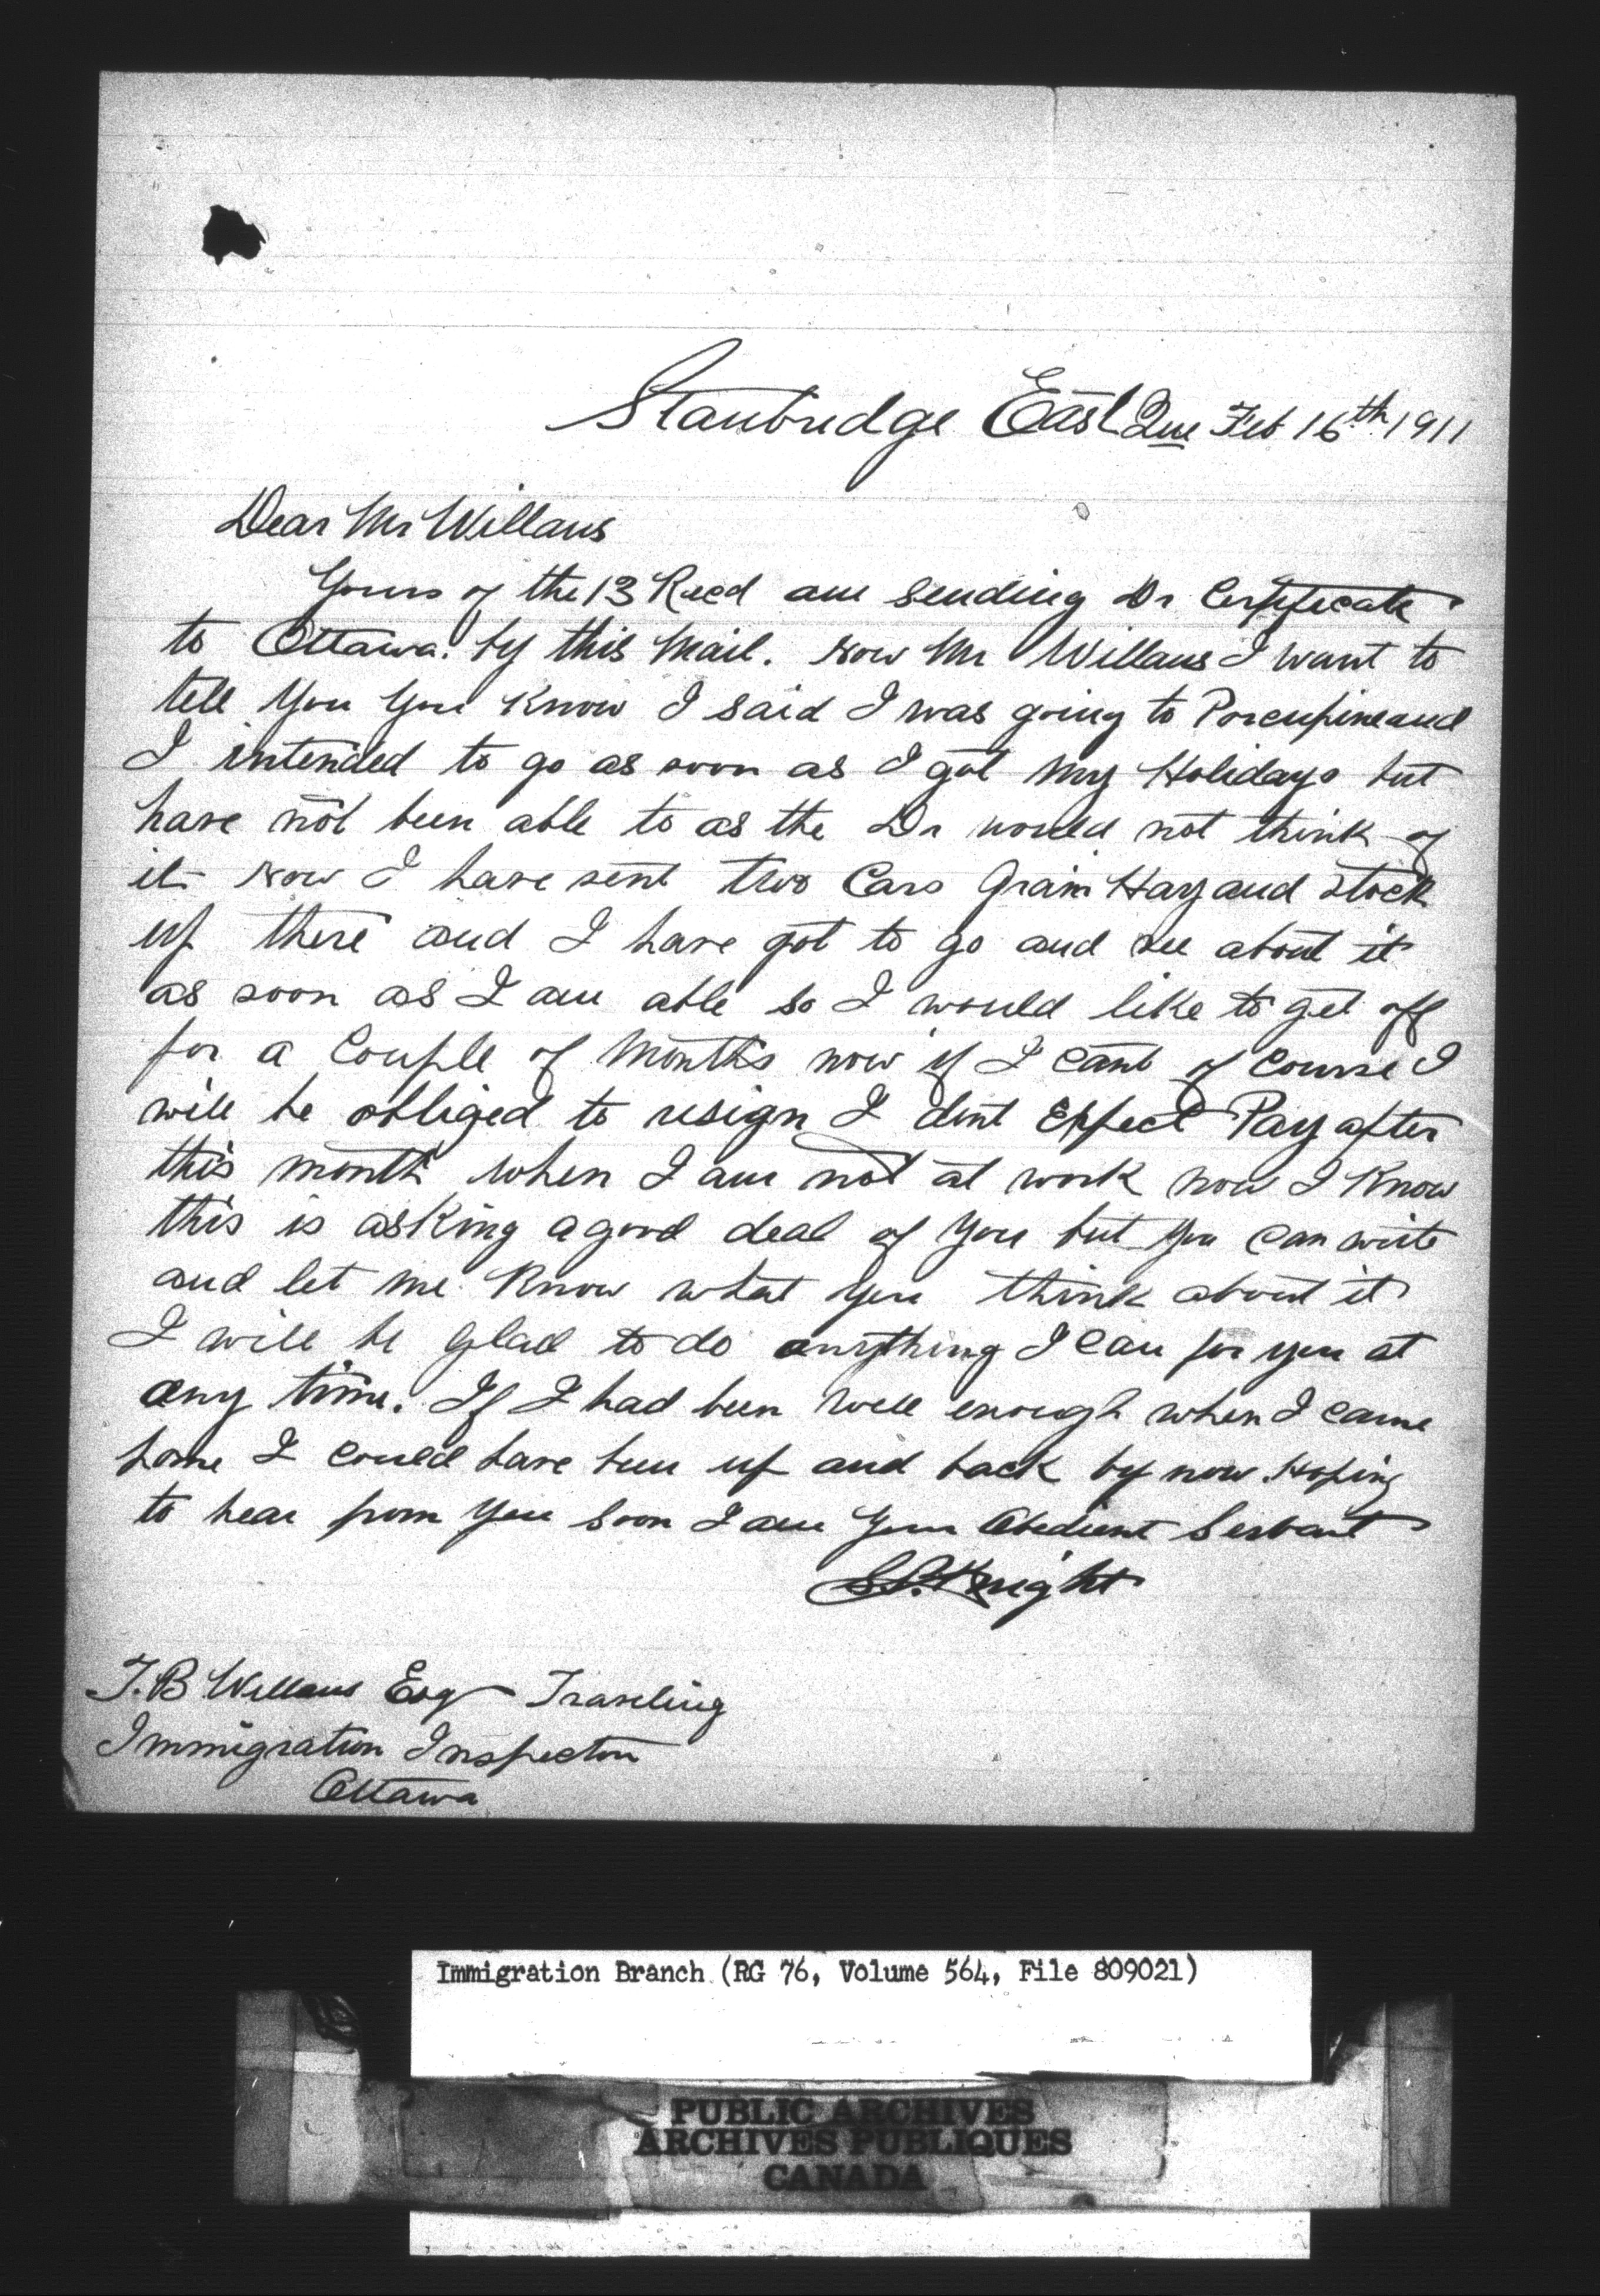 Stanbridge East Que Feb 16th 1911
Dear Mr Willans
Yours of the 13 Recd am sending Dr Certificate
to Ottawa. by this Mail. Now Mr Willans I want to
tell You You Know I said I was going to Porcupine and
I intended to go as soon as I got my Holidays but
have not been able to as the Dr would not think of
it Now I have sent two Cars Grain Hay and Stock
up there and I have got to go and see about it
as soon as I am able so I would like to get off
for a Couple of Months now if I cant of Course I
will be obliged to resign I dont Expect Pay after
this month when I am not at work now I Know
this is asking a good deal of You but You can write
and let me Know what you think about it
I will be glad to do anything I can for you at
any time. If I had been well enough when I came
home I could have been up and back by now Hoping
to hear from You Soon I am Your Obedient Servant
Knight
T.B Willans Esq Traveling
Immigration Inspector
Ottawa
Immigration Branch (RG 76, Volume 564, File 809021)
PUBLIC ARCHIVES
ARCHIVES PUBLIQUES
CANADA